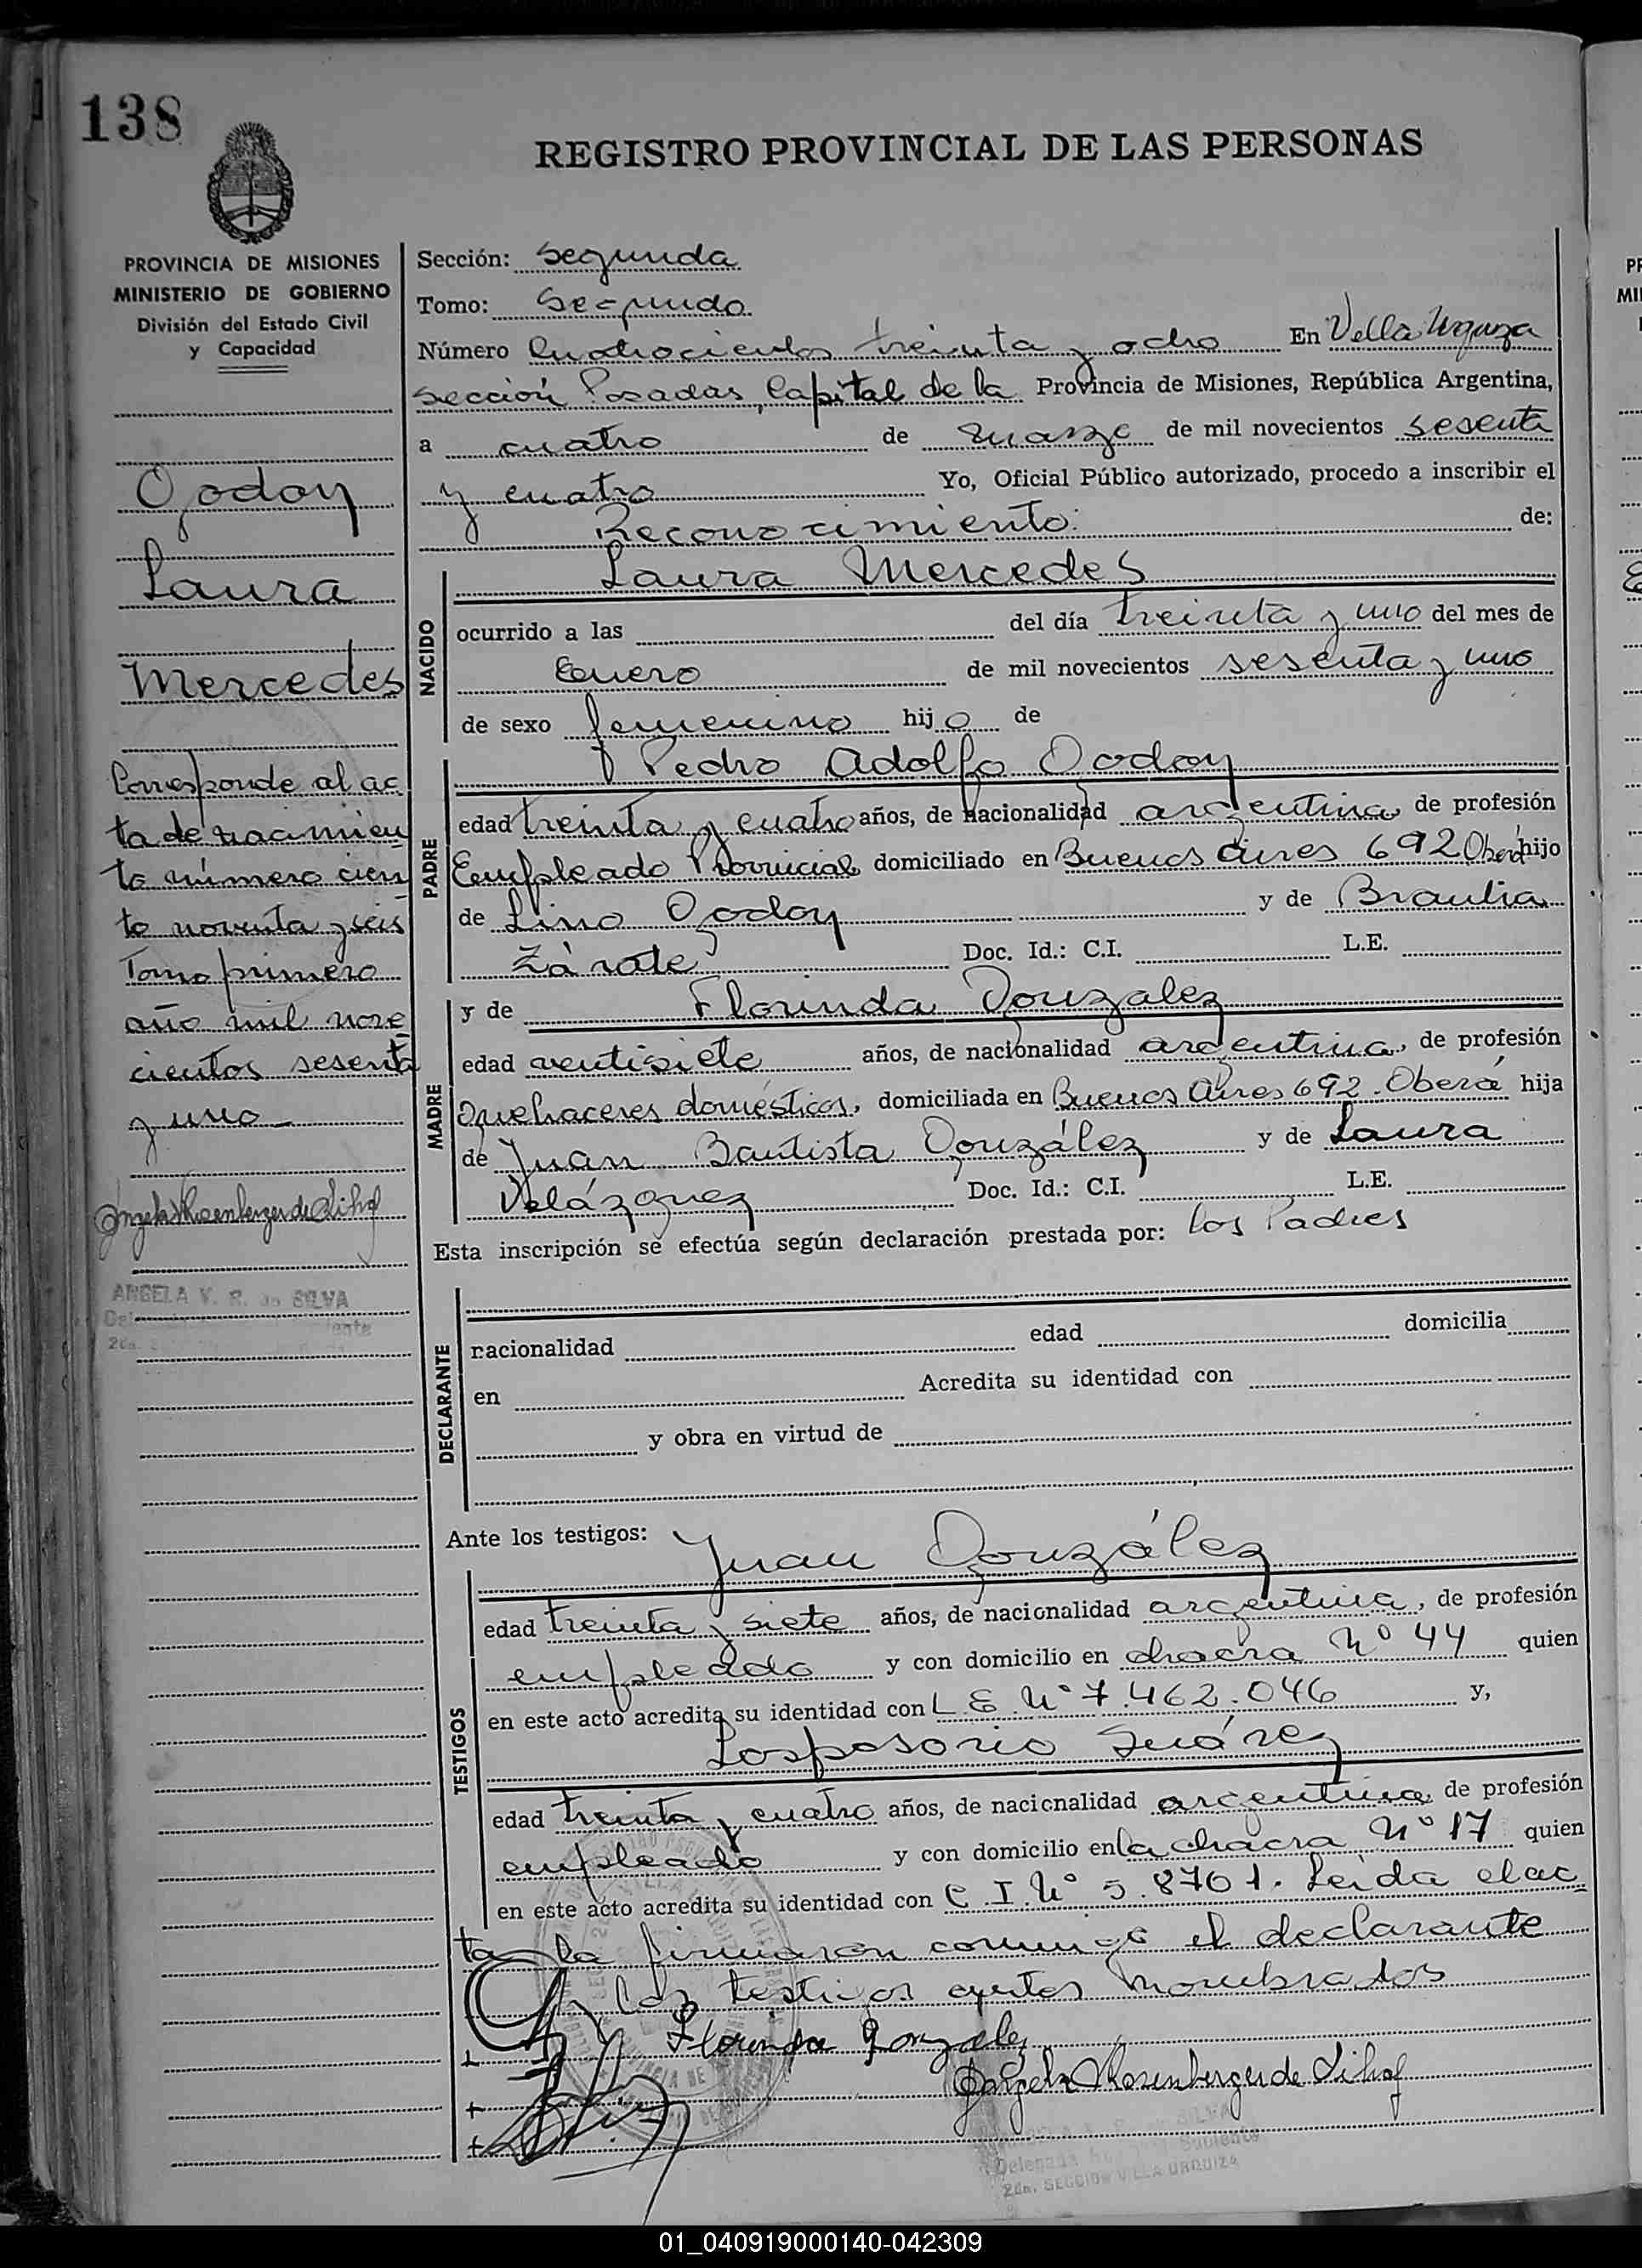 138
REGISTRO PROVINCIAL DE LAS PERSONAS
PROVINCIA DE MISIONES
MINISTERIO DE GOBIERNO
División del Estado Civil
y Capacidad
Godoy
Laura
Mercedes
Corresponde al ac
ta de nacimien
to número cien
to noventa y seis
Tomo primero
año mil nove
cientos sesenta
y uno
ANGELA V. R. de SILVA
Sección: Segunda
Tomo: Segundo
Número Cuatrocientos treinta y ocho En Villa Urquiza
sección Posadas, Capital de la Provincia de Misiones, República Argentina,
a cuatro de marzo de mil novecientos sesenta
y cuatro Yo, Oficial Público autorizado, procedo a inscribir el
Reconocimiento de:
NACIDO
Laura Mercedes
ocurrido a las del día treinta y uno del mes de
Enero de mil novecientos sesenta y uno
de sexo femenino hijo de
PADRE
Pedro Adolfo Godoy
edad treinta y cuatro años, de nacionalidad argentina de profesión
Empleado Provincial domiciliado en Buenos Aires 692 Oberá hijo
de Lino Godoy y de Braulia
Zárate Doc. Id.: C.I. L.E.
MADRE
y de Florinda Gonzalez
edad ventisiete años, de nacionalidad argentina, de profesión
Quehaceres domésticos, domiciliada en Buenos Aires 692. Oberá hija
de Juan Bautista González y de Laura
Velázquez Doc. Id.: C.I. L.E.
Esta inscripción se efectúa según declaración prestada por: los Padres
DECLARANTE
nacionalidad edad domicilia
en Acredita su identidad con
y obra en virtud de
Ante los testigos: Juan González
TESTIGOS
edad treinta y siete años, de nacionalidad argentina, de profesión
empleado y con domicilio en chacra Nº 44 quien
en este acto acredita su identidad con L.E. Nº 7.462.046 y,
Suárez
edad treinta y cuatro años, de nacionalidad argentina, de profesión
empleado y con domicilio en la chacra Nº 17 quien
en este acto acredita su identidad con C.I. Nº 5.8761. Leída el ac
ta la firmaron conmigo el declarante
y los testigos antes nombrados
Florinda Gonzalez
2da. SECCION VILLA URQUIZA
01_040919000140-042309